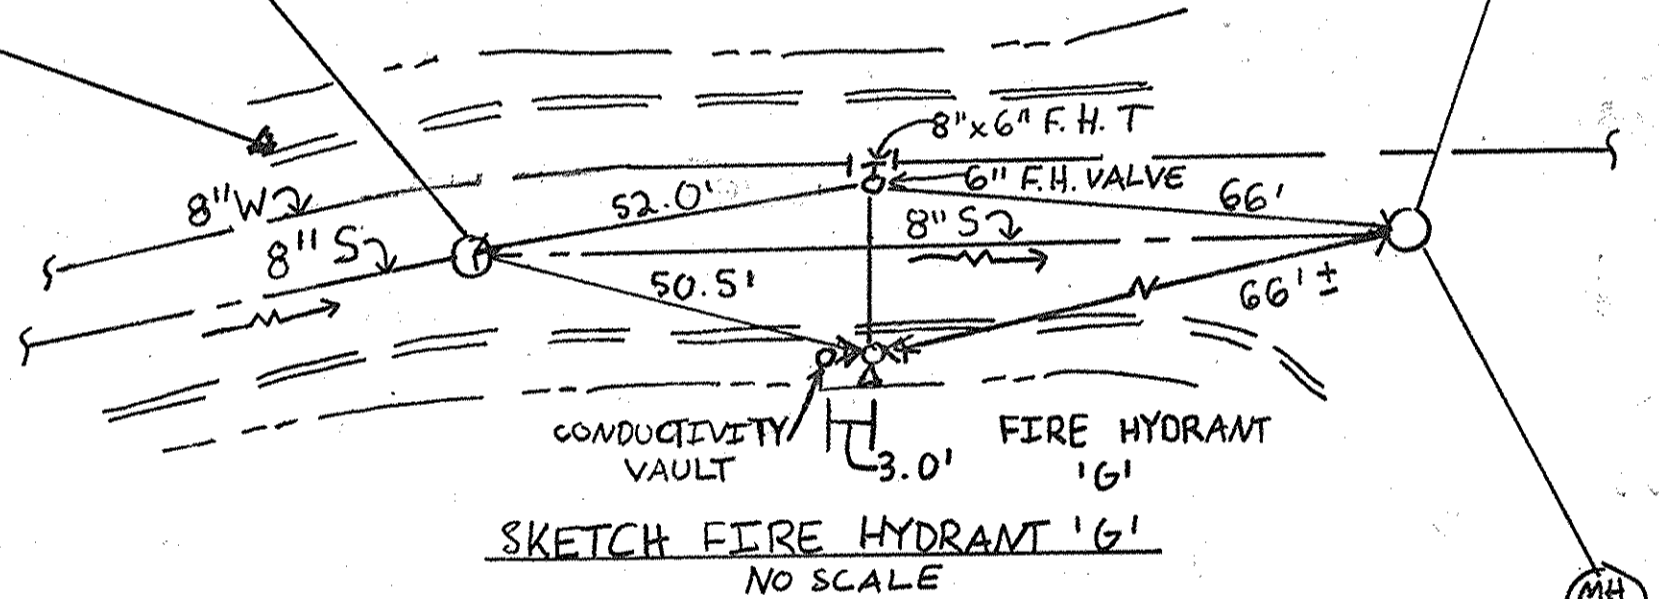 8"x6" F.H. T
6" F.H. VALVE
8" W
52.0'
66'
8" S
8" S
50.5'
66' ±
CONDUCTIVITY
VAULT
3.0'
FIRE HYDRANT
'G'
SKETCH FIRE HYDRANT 'G'
NO SCALE
MH